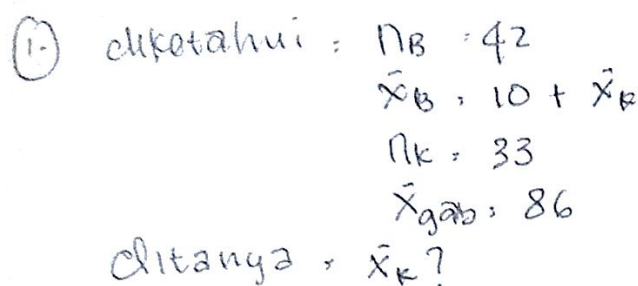 1. diketahui : nB = 42
x̄B = 10 + x̄k
nk = 33
x̄gab = 86
ditanya = x̄k?